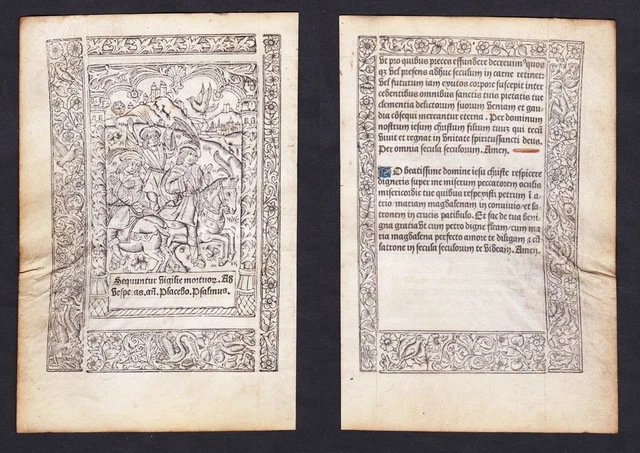 Sequuntur Vigilie mortuor. Ad
Vesperas. añ. Placebo. Psalmus.
vt pro quibus preces effundere decreuim⁹ quos
q; vel presens adhuc seculum in carne retinet:
vel futurum iam exutos corpore suscepit inter
cedentibus omnibus sanctis tuis pietatis tue
clementia delictorum suorum veniam et gau
dia cōsequi mereantur eterna. Per dominum
nostrum iesum christum filium tuū: qui tecū
viuit et regnat in vnitate spiritussancti deus.
Per omnia secula seculorum. Amen.
O beatissime domine iesu christe respicere
digneris super me miserum peccatorem oculis
misericordie tue quibus respexisti petrum ī a
trio: mariam magdalenam in conuiuio: et la
tronem in crucis patibulo. Et fac de tua beni
gna gratia: vt cum petro digne fleam: cum ma
ria magdalena perfecto amore te diligam: et cū
latrone in secula seculorum te videam. Amen.